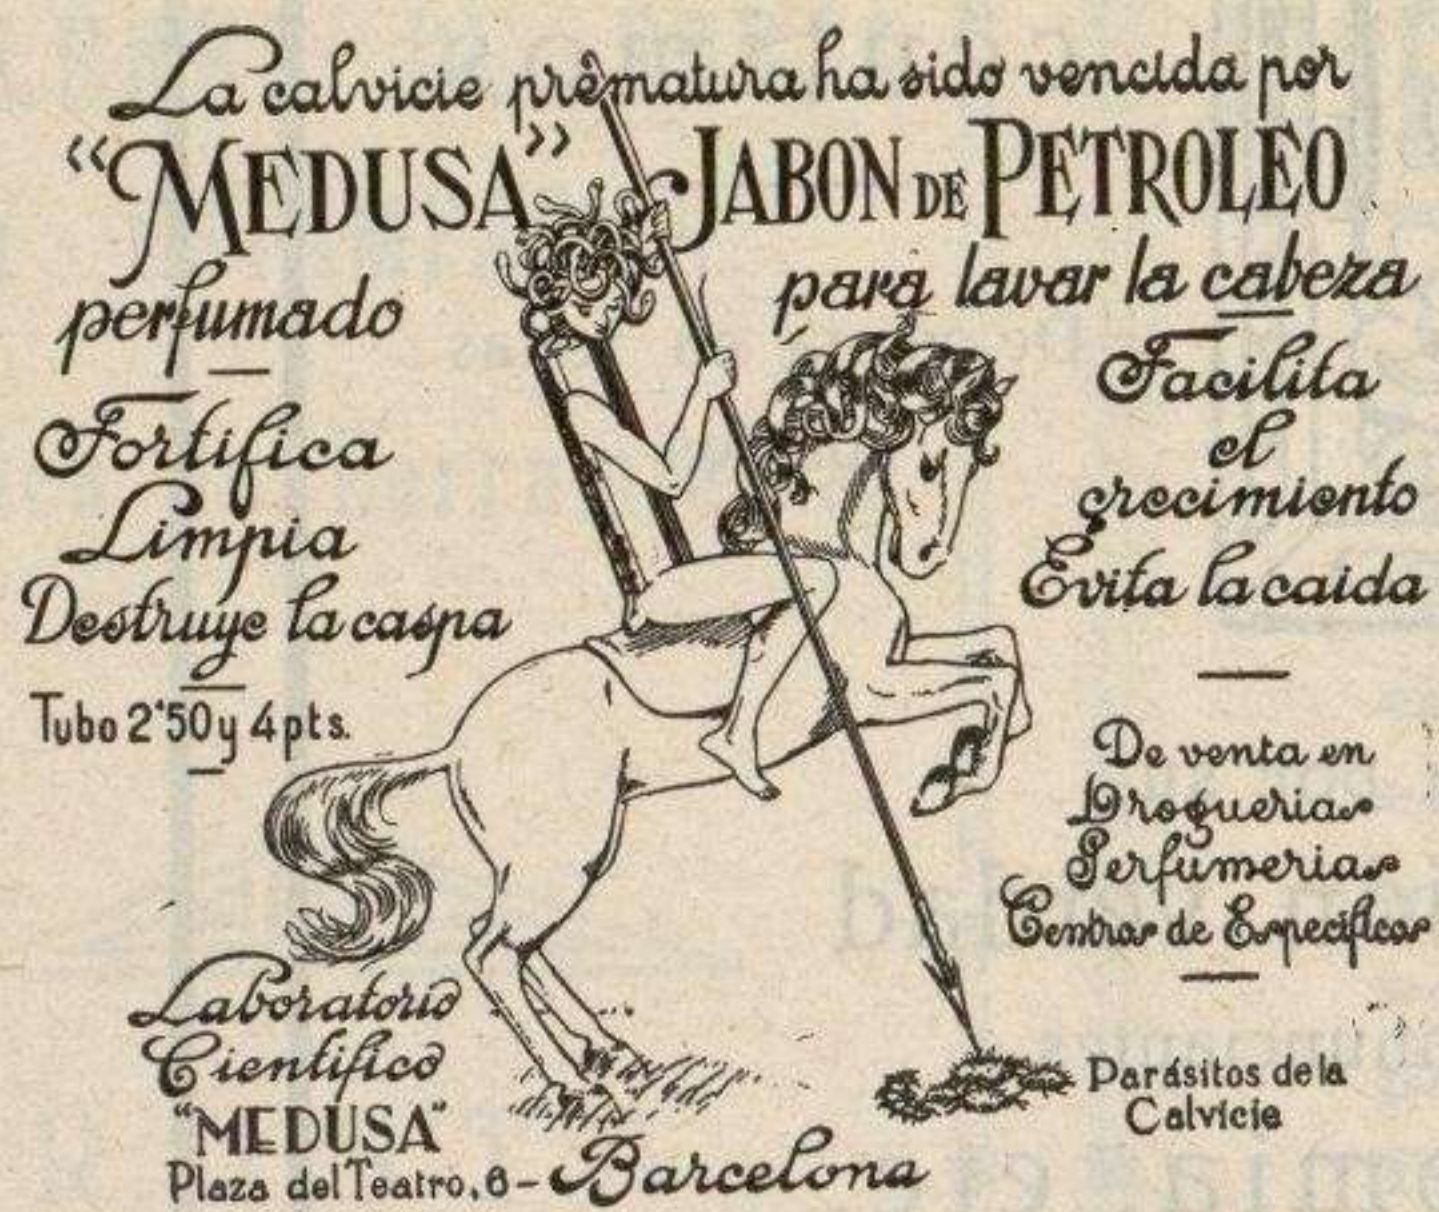 La calvicie prematura ha sido vencida por
“MEDUSA” JABON DE PETROLEO
perfumado
para lavar la cabeza
Fortifica
Limpia
Destruye la caspa
Tubo 2'50 y 4 pts.
Facilita
el
crecimiento
Evita la caida
De venta en
Droguerias
Perfumerias
Centros de Específicos
Laboratorio
Cientifico
"MEDUSA"
Plaza del Teatro, 6 - Barcelona
Parásitos de la
Calvicie